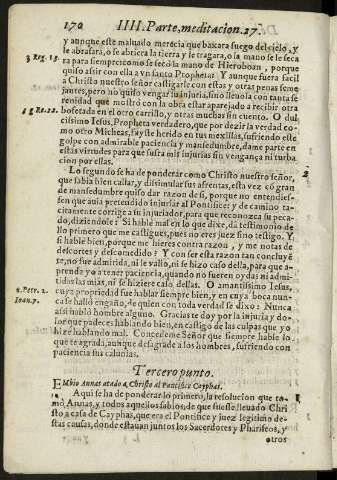 170 IIII. Parte, meditacion. 27.
y aunque este maluado merecia que baxara fuego del cielo, y
le abrasara, o se abriera la tierra y le tragara, o la mano se le seca
3 Reg. 13. ra para siempre como se secò la mano de Hieroboan, porque
quiso asir con ella a vn santo Propheta: Y aunque fuera facil
a Christo nuestro señor castigarle con estas y otras penas seme
jantes, pero no quiso vengar su injuria, sino lleuola con tanta se
renidad que mostrò con la obra estar aparejado a recibir otra
bofetada en el otro carrillo, y otras muchas sin cuento. O dul
cissimo Iesus, Propheta verdadero, que por dezir la verdad co-
mo otro Micheas, fuyste herido en tus mexillas, sufriendo este
golpe con admirable paciencia y mansedumbre, dame parte en
estas virtudes para que sufra mis injurias sin vengança ni turba
cion por ellas.
Lo segundo se ha de ponderar como Christo nuestro señor,
que sabia bien callar, y dissimular sus afrentas, esta vez cõ gran
de mansedumbre quiso dar razon de si, porque no entendies-
sen que auia pretendido injuriar al Pontifice: y de camino ta-
citamente corrige a su injuriador, para que reconozca su peca-
do, diziendole: Si hablè mal en lo que dixe, da testimonio de
llo primero que me castigues, pues no eres juez sino testigo. Y
si hablè bien, porque me hieres contra razon, y me notas de
descortes y descomedido? Y con ser esta razon tan concluyẽ
te, no fue admitida, ni le valio, ni se hizo caso della, para que a-
prenda yo a tener paciencia, quando no fueren oydas ni admi-
tidas las mias, ni se hiziere caso dellas. O amantissimo Iesus,
1. Petr. 2. cuya propriedad fue hablar siempre bien, y en cuya boca nun-
Ioan. 7. ca se hallò engaño, de quien con toda verdad se dixo: Nunca
assi hablò hombre alguno. Gracias te doy por la injuria y do-
lor que padeces hablando bien, en castigo de las culpas que yo
hize hablando mal. Concedeme Señor que siempre hable lo
que te agrada, aunque desagrade a los hombres, sufriendo con
paciencia sus calunias.
Tercero punto.
EMbio Annas atado a Christo al Pontifice Cayphas.
Aqui se ha de ponderar lo primero, la resolucion que to-
mò Annas, y todos aquellos sabios, de que fuesse lleuado Chri
sto a casa de Cayphas, que era el Pontifice y juez legitimo de-
stas causas, donde estauan juntos los Sacerdotes y Phariseos, y
otros